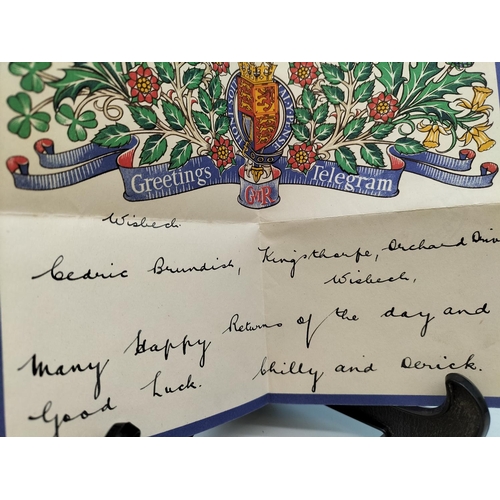 HONI SOIT MAL Y PENSE
Greetings Telegram
GviR
Wisbech
Cedric Brundish, Kingsthorpe, Orchard Driv
Wisbech,
Many Happy Returns of the day and
Good Luck. Chilly and Derick.